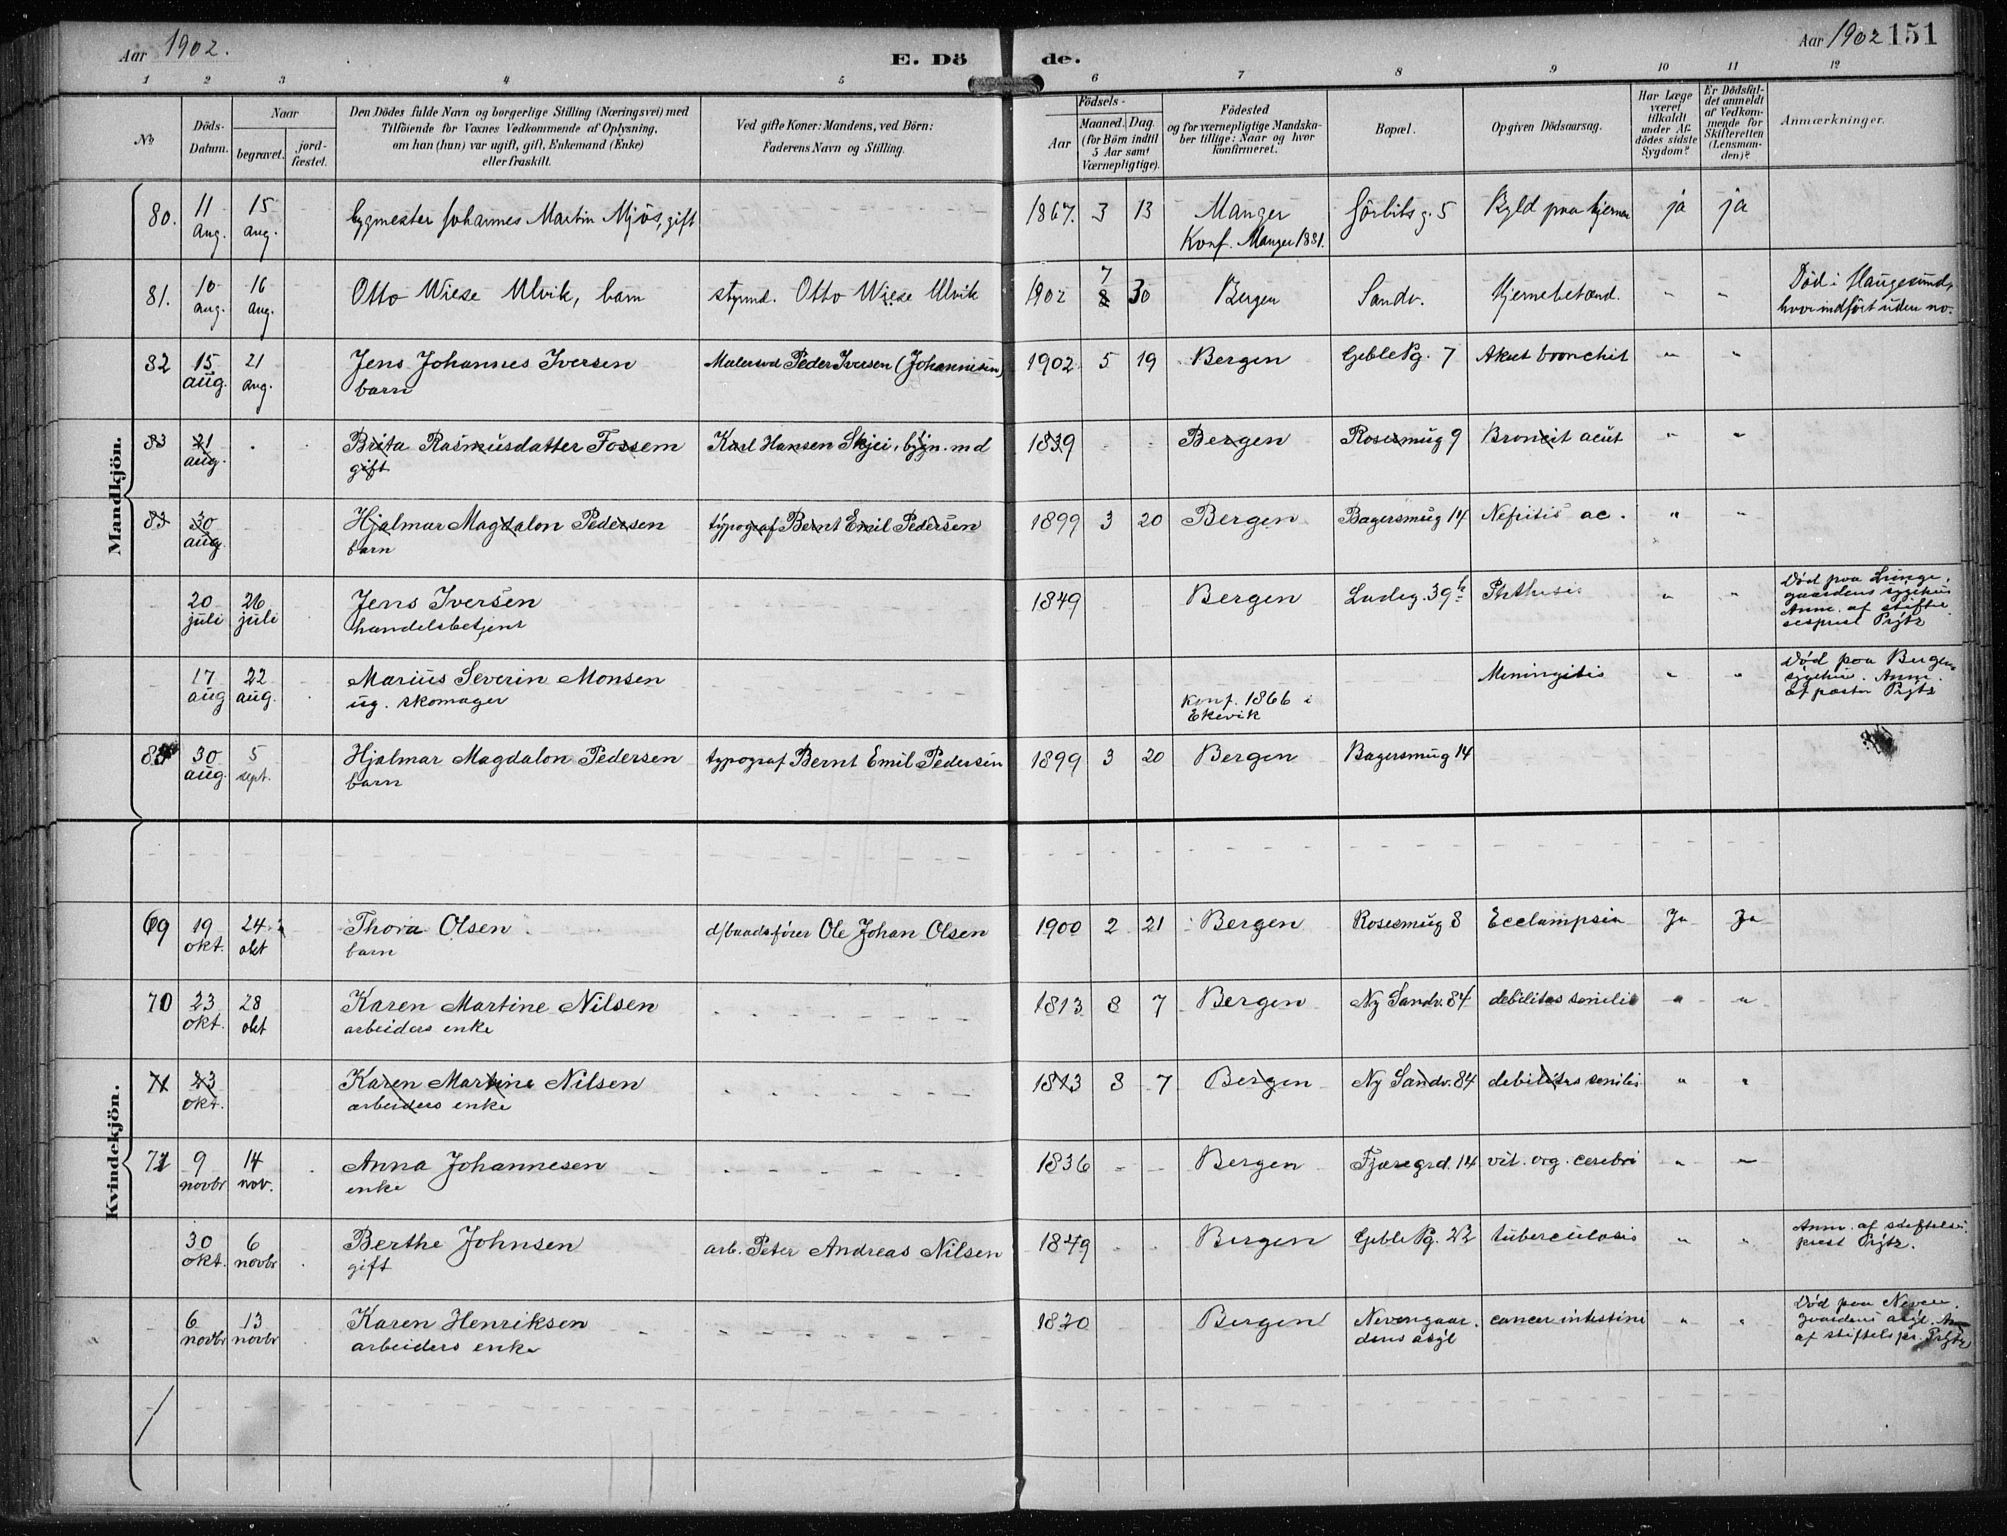 Aar 1902.
E. Döde.
Aar 1902 151
1 2 3 4 5 6 7 8 9 10 11 12
No.
Döds-
Datum.
Naar
begravet.
jord-
fæstet.
Den Dödes fulde Navn og borgerlige Stilling (Næringsvei) med
Tilföiende for Voxnes Vedkommende af Oplysning,
om han (hun) var ugift, gift, Enkemand (Enke)
eller fraskilt.
Ved gifte Koner: Mandens, ved Börn:
Faderens Navn og Stilling.
Födsels-
Aar
Maaned. Dag.
(for Börn indtil
5 Aar samt
Værnepligtige).
Födested
og for værnepligtige Mandska-
ber tillige: Naar og hvor
konfirmeret.
Bopæl.
Opgiven Dödsaarsag.
Har Læge
været
tilkaldt
under Af-
dödes sidste
Sygdom?
Er Dödsfal-
det anmeldt
af Vedkom-
mende for
Skifteretten
(Lensman-
den)?
Anmærkninger.
Mandkjön.
80. 11 aug. 15 aug. bygmester Johannes Martin Mjös, gift 1867. 3 13 Manger Konf. Manger 1881. g. 5 Byld paa hjernen ja ja
81. 10 aug. 16 aug. Otto Wiese Ulvik, barn styrmd. Otto Wiese Ulvik 1902 7 8 30 Bergen Sandv. Hjernebetænd. " " Död i Haugesund, hvor indfört uden no.
82 15 aug. 21 aug. Jens Johannes Iversen barn Malersvd Peder Iversen (Johannesen) 1902 5 19 Bergen Geble Pg. 7 Akut bronchit " "
83 21 aug. Brita Rasmusdatter Fossem gift Karl Hansen Skjei, bygn. md 1839 Bergen Rosesmug 9 Broncit acut " "
83 30 aug. Hjalmar Magdalon Pedersen barn typograf Bernt Emil Pedersen 1899 3 20 Bergen Bagersmug 14 Nefritis ac. " "
20 juli 26 juli Jens Iversen handelsbetjent 1849 Bergen Ladeg. 39 b Phthisis " " Död paa Lunge-
gaardens sygehus
Anm. af stiftel-
sesprest Prytz
17 aug 22 aug. Marius Severin Monsen ug. skomager Konf. 1866 i Ekevik Meningitis " " Död paa Bergens
sygehus. Anm.
af pastor Prytz
83 30 aug. 5 sept. Hjalmar Magdalon Pedersen barn typograf Bernt Emil Pedersen 1899 3 20 Bergen Bagersmug 14
Kvindekjön.
69 19 okt. 24 okt Thora Olsen barn d/baadsfører Ole Johan Olsen 1900 2 21 Bergen Rosesmug 8 Ecclampsia Ja Ja
70 23 okt. 28 okt Karen Martine Nilsen arbeiders enke 1813 8 7 Bergen Ny Sandv. 84 debilitas senilis " "
71 23 okt. Karen Martine Nilsen arbeiders enke 1813 8 7 Bergen Ny Sandv. 84 debilitas senilis " "
71 9 novbr 14 nov. Anna Johannesen enke 1836 Bergen Fjæregrd. 14 vit. org. cerebri " "
30 okt. 6 novbr Berthe Johnsen gift arb. Peter Andreas Nilsen 1849 Bergen Geble Pg. tuberculosis " " Anm. af stiftelses-
prest Prytz.
6 novbr 13 novbr Karen Henriksen arbeiders enke 1820 Bergen Nevengaar-
dens asyl cancer intestini " " Död paa Neven-
gaardens asyl. Anm
af stiftelspr. Prytz